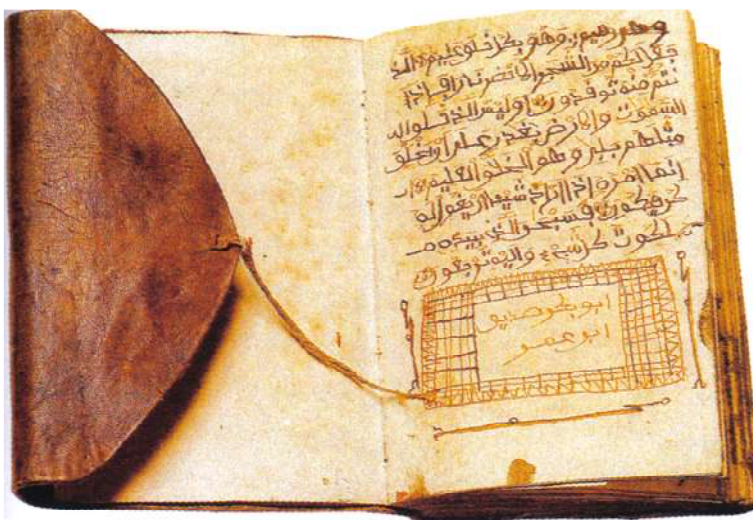 وهي رميم وهو بكل خلق عليم الذ
جعل لكم من الشجر الاخضر نارا فإذا
نتم منه توقدون اوليس الذ خلق ال
السموت والارض بقدر على ان يخلق
مثلهم بلى وهو الخلق العليم
انما امره اذا اراد شيئا ان يقول له
كن فيكون فسبحن الذ بيده م
لكوت كل شيء واليه ترجعون
ابو بكر صديق
ابو عمر